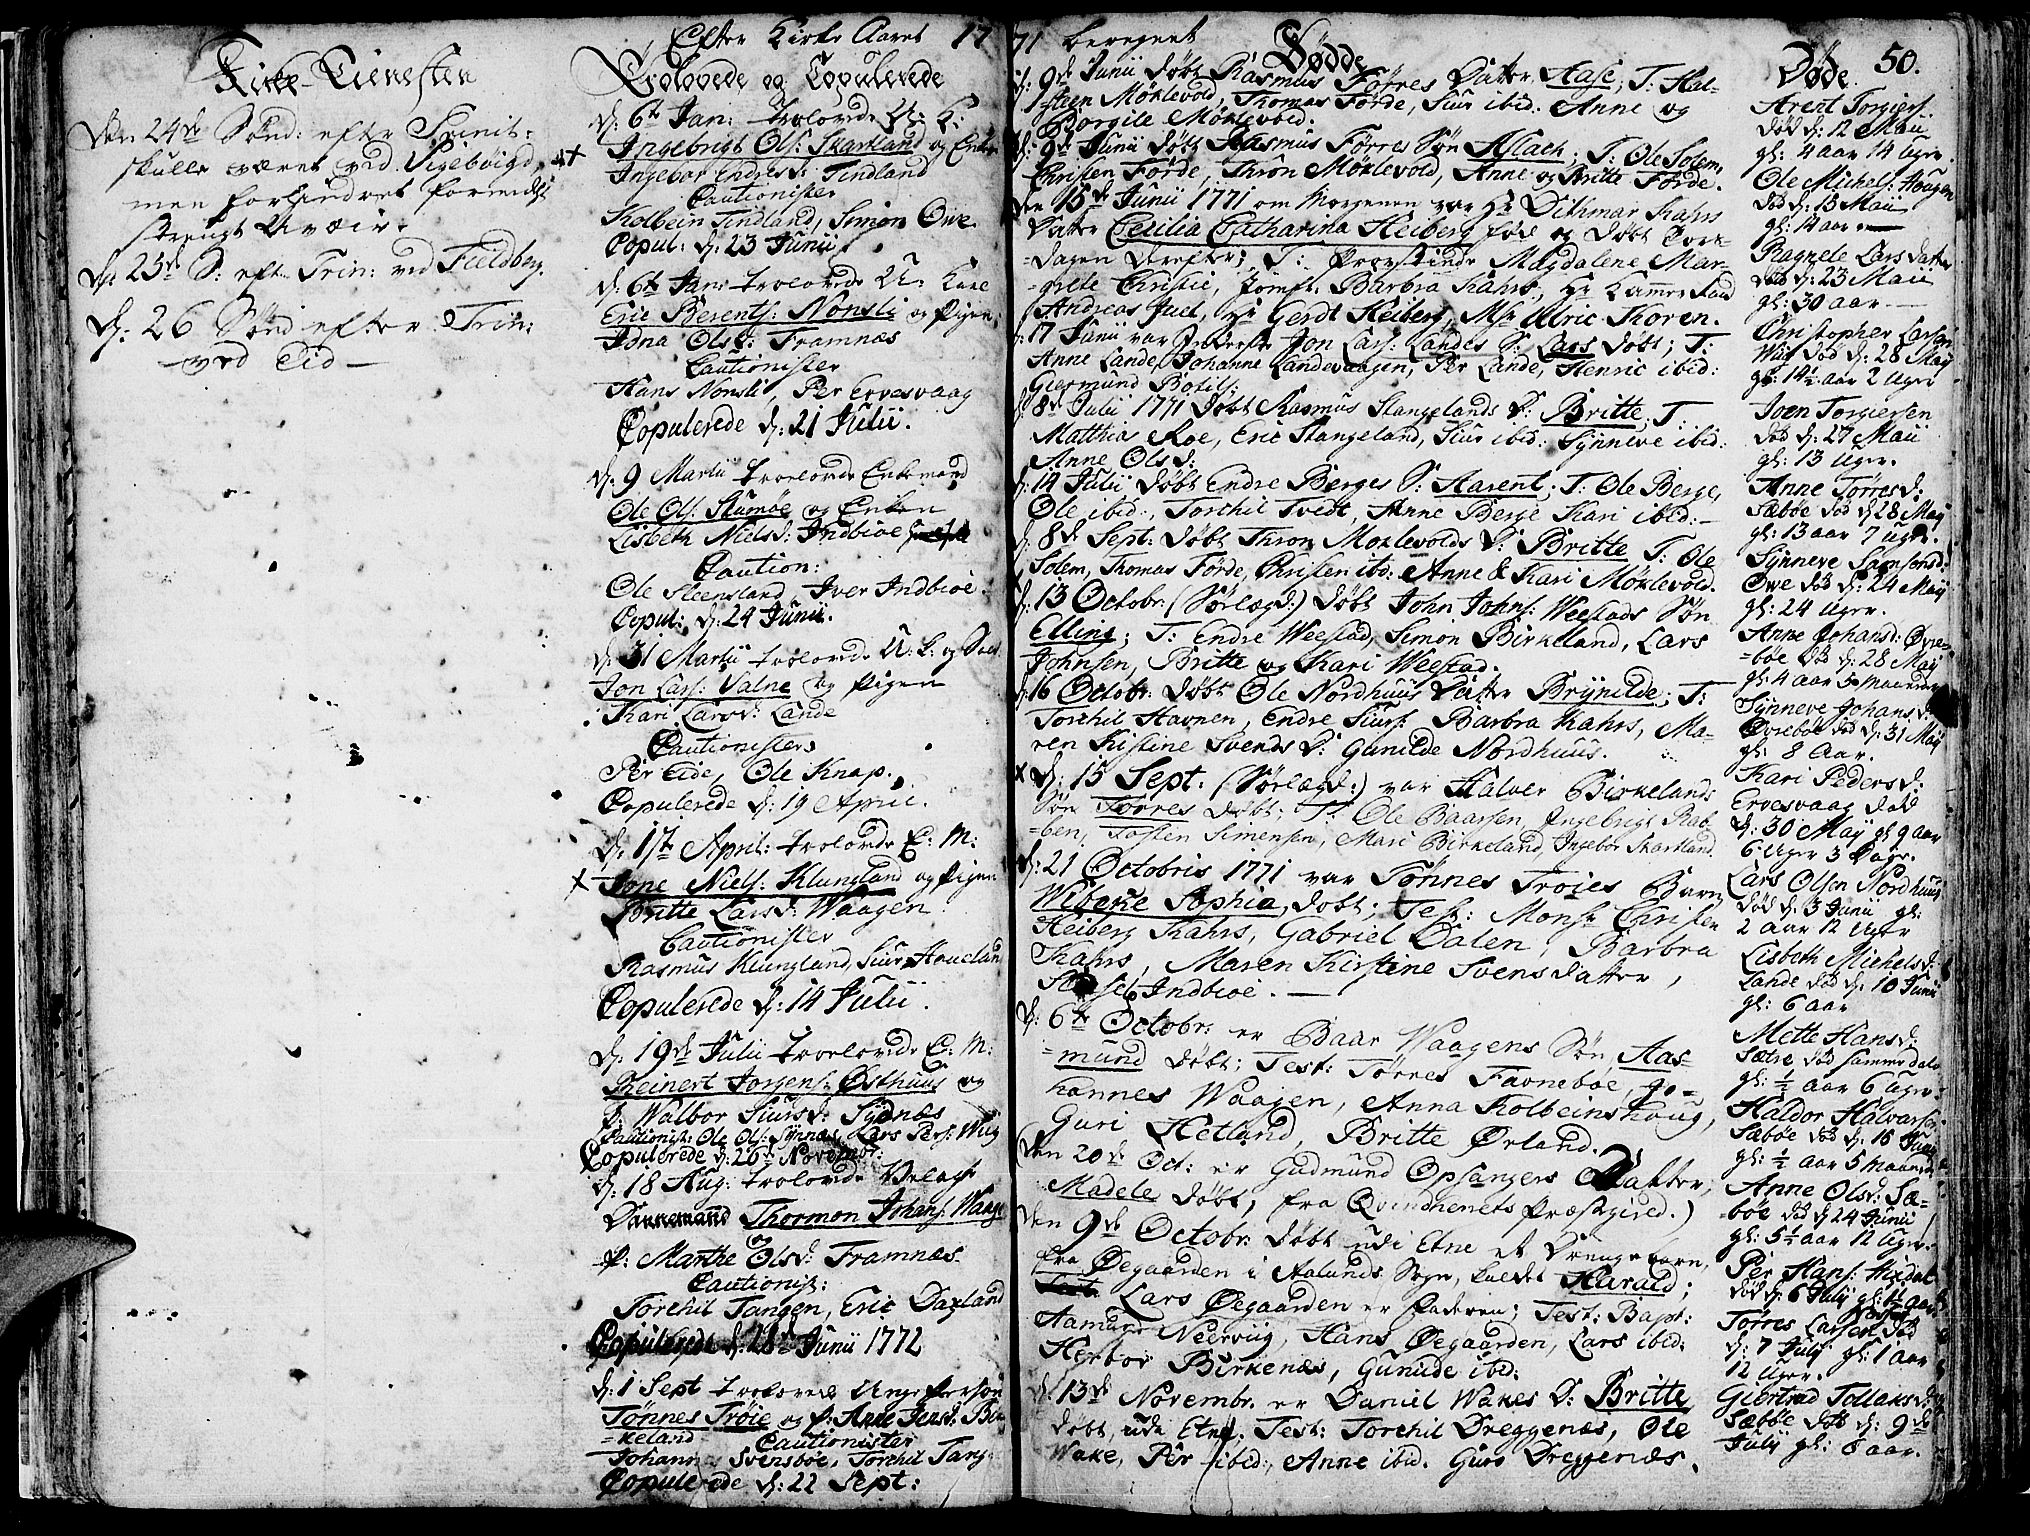 Efter Kirke Aaret 1771 beregnet
50.
Kirke-Tienesten
Den 24de Sønd: efter Trinit:
skulle været ved Vigebøigd,
men forhindret formedelst
strengt Uveir.
Den 25de S: eft. Trin: ved Fieldberg
D: 26 Sønd efter Trin:
ved Eid
Trolovede og Copulerede
d: 6te Jan: trolovede U: K:
Ingebrigt Ols: Skartland og Enken
Ingebor Endresd: Tindland
Cautionister
Kolbein Tindland, Simon Owe
Copul: d: 23 Junii
d: 6te Jan: trolovede U: Karl
Eric Berents: Nonsli og Pigen
Idna Olsd: Framnæs
Cautionister
Hans Nonsli, Per Ervesvaag
Copulerede d: 21 Julii.
d: 9 Martii trolovede Enkemand
Ole Ols: Skumøe og Enken
Lisbeth Nielsd: Indbioe
Caution:
Ole Steensland, Iver Indbioe.
Copul: d: 24 Junii.
d: 31 Martii trolovede U: K: og
Jon Lars: Valne og Pigen
Kari Larsd: Lande
Cautionister
Per Eide, Ole Knap.
Copulerede d: 19 April.
d: 1ste April: trolovede E: M:
Jone Niels: Klungland og Pigen
Britte Larsd: Waagen
Cautionister
Rasmus Klungland, Siur Houeland
Copulerede d: 14 Julii.
d: 19de Julii trolovede E: M:
Reinert Jorgens: Østhuus og
P: Walbor Siursd: Sydnæs
Cautionist: Ole Ols: Synnæs, Lars Pers: Wiig
Copulerede d: 26 Novembr:
d: 18 Aug: trolovede
Dannemand Thormon Johans: Waage
og
P: Marthe Olsd: Framnæs
Cautionist:
Torchil Tangen, Eric Daxland
Copulerede d: 28de Junii 1772
d: 1 Sept trolovede Unge Person
Tønnes Trøie og P: Anne Jensd: Bir-
=keland Cautionister
Johannes Svensbøe, Torchil Tang
Copulerede d: 22 Sept:
Fødde
d: 9de Junii døbt Rasmus Førres Datter Aase; T: Hal-
steen Møklevold, Thomas Førde, Siur ibid. Anne og
Borgile Møklevold.
d: 9de Junii døbt Rasmus Førres Søn Aslack; T: Ole Solem,
Christen Førde, Thron Møklevold, Anne og Britte Førde.
Den 15de Junii 1771 om Morgenen var Hr Dithmar Kahrs
Datter Cecilia Catharina Heiberg fød og døbt
=dagen derefter; T: Provstinde Magdalene Mar-
=grete Christie, Jomfr. Barbra Kahrs, Hr Cammer Raad
Andreas Juel, Hr Gerdt Heiberg, Msr Ulric Thoren.
d: 17 Junii var Jon Lars: Landes S: Lars døbt; T:
Anne Lande, Johanne Landevaagen, Per Lande, Henric ibid:
Giermund Botils:
d: 8de Julii 1771 døbt Rasmus Stangelands D: Britte; T:
Matthias Roe, Eric Stangeland, Siur ibid: Synneve ibid:
Anne Olsd:
d: 14 Julii døbt Endre Berges S: Aarent; T: Ole Berge,
Ole ibid:, Torchil Tvedt, Anne Berge Kari ibid:
d: 8de Sept: døbt Thron Moklevolds D: Britte T: Ole
Solem, Thomas Førde, Christen ibid: Anne & Kari Møklevold.
d: 13 Octobr: (Sørlægd:) døbt John Johns: Weestads Søn
Elling; T: Endre Weestad, Simon Birkeland, Lars
Johnsen, Britte og Kari Weestad.
d: 16 Octobr: døbt Ole Nordhuus Datter Brynilde; T:
Torchil Havnen, Endre Siurs: Barbra Kahrs, Ma-
ren Kistine Svends D: Gunilde Nordhuus.
d: 15 Sept. (Sørlægd:) var Halvor Birkelands
Søn Tørres døbt; T: Ole Baarsen, Ingebrigt Rab-
=ben, Tosten Simensen, Mari Birkeland, Ingebor Skartland.
d: 21 Octobris 1771 var Tønnes Troies Barn
Wibeke Sophia, døbt; Test: Monsr Christen
Heiberg Kahrs, Gabriel Dalen, Barbra
Kahrs, Maren Kirstine Svensdatter,
Indbioe.
d: 6te Octobr: er Baar Waagens Søn Aas-
=mund døbt; Test: Tørres Favnebøe, Jo-
hannes Waagen, Anna Kolbeinshoug,
Guri Hetland, Britte Ørland.
Den 20de Oct: er Gudmund Opsangers Datter,
Madele døbt, (fra Qvindherrets Præstegield.)
Den 9de Octobr: døbt udi Etne et Drengebarn,
fra Øegaarden i Aalunds Sogn, kaldet Harald;
Lars Øegaarden er Faderen; Test: Bapt:
Aamund Neerviig, Hans Øegaarden, Lars ibid:
Herbor Birkenæs, Gunilde ibid:
d: 13de Novembr: er Daniel Wakes D: Britte
døbt, udi Etne. Test: Torchil Dreggenæs, Ole
Wake, Per ibid:, Anne ibid. Guro Dreggenæs.
Døde
Arent Torgiers:
død d: 12 Maii
gl: 4 aar 14 Uger.
Ole Michels: Hougen
død d: 13 Maii
gl: 14 aar
Ragnele Lars datter
død d: 23 Maii
gl: 30 aar
Christopher Larsen
Wiig død d: 28 May
gl: 14½ aar 2 Uger
Joen Torgiersen
død d: 27 Maii
gl: 13 Uger.
Anne Tørresd:
Sæbøe død d: 28 May
gl: 13 aar 7 uger.
Synneve Samsonsd:
Owe død d: 24 May
gl: 24 Uger.
Anne Johansd: Øvre-
=bøe død d: 28 May
gl: 4 aar 5 maaneder
Synneve Johansd:
Øvrebøe død d: 31 May
gl: 8 Aar.
Kari Pedersd:
Ervesvaag død
d: 30 May gl 9 aar
6 Uger 3 Dage.
Lars Olsen Nordhuus
død d: 3 Junii gl:
2 aar 12 Uger
Lisbeth Michelsd:
Lande død d: 10 Junii
gl: 6 aar
Mette Hansd:
Sætre død samme dato
gl: ½ aar 6 Uger.
Haldor Halvorsen
Sæbøe død d: 16 Junii
gl: ½ aar 5 maaneder
Anne Olsd: Sæ-
=bøe død d 24 Junii
gl: 5½ aar 12 Uger.
Per Hans:
død d: 6 July gl: aar
Tørres Larsen død
d: 7 July gl: 1 aar
12 Uger.
Giertrud Tollaksd:
Sæbøe død d: 9de
July gl: 8 aar.